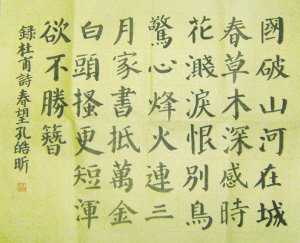 國破山河在城
春草木深感時
花濺淚恨別鳥
驚心烽火連三
月家書抵萬金
白頭搔更短渾
欲不勝簪
錄杜甫詩春望孔皓昕